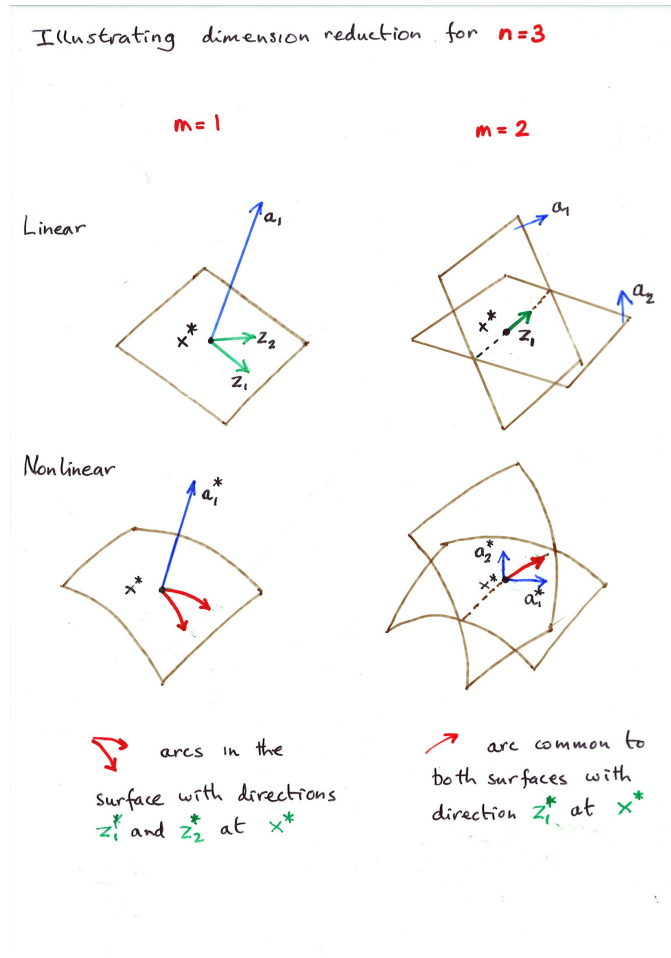 Illustrating dimension reduction for n=3
m=1
m=2
Linear
a₁
x*
z₂
z₁
a₁
a₂
x*
z₁
Nonlinear
a₁*
x*
a₂*
x*
a₁*
arcs in the
surface with directions
z₁* and z₂* at x*
arc common to
both surfaces with
direction z₁* at x*